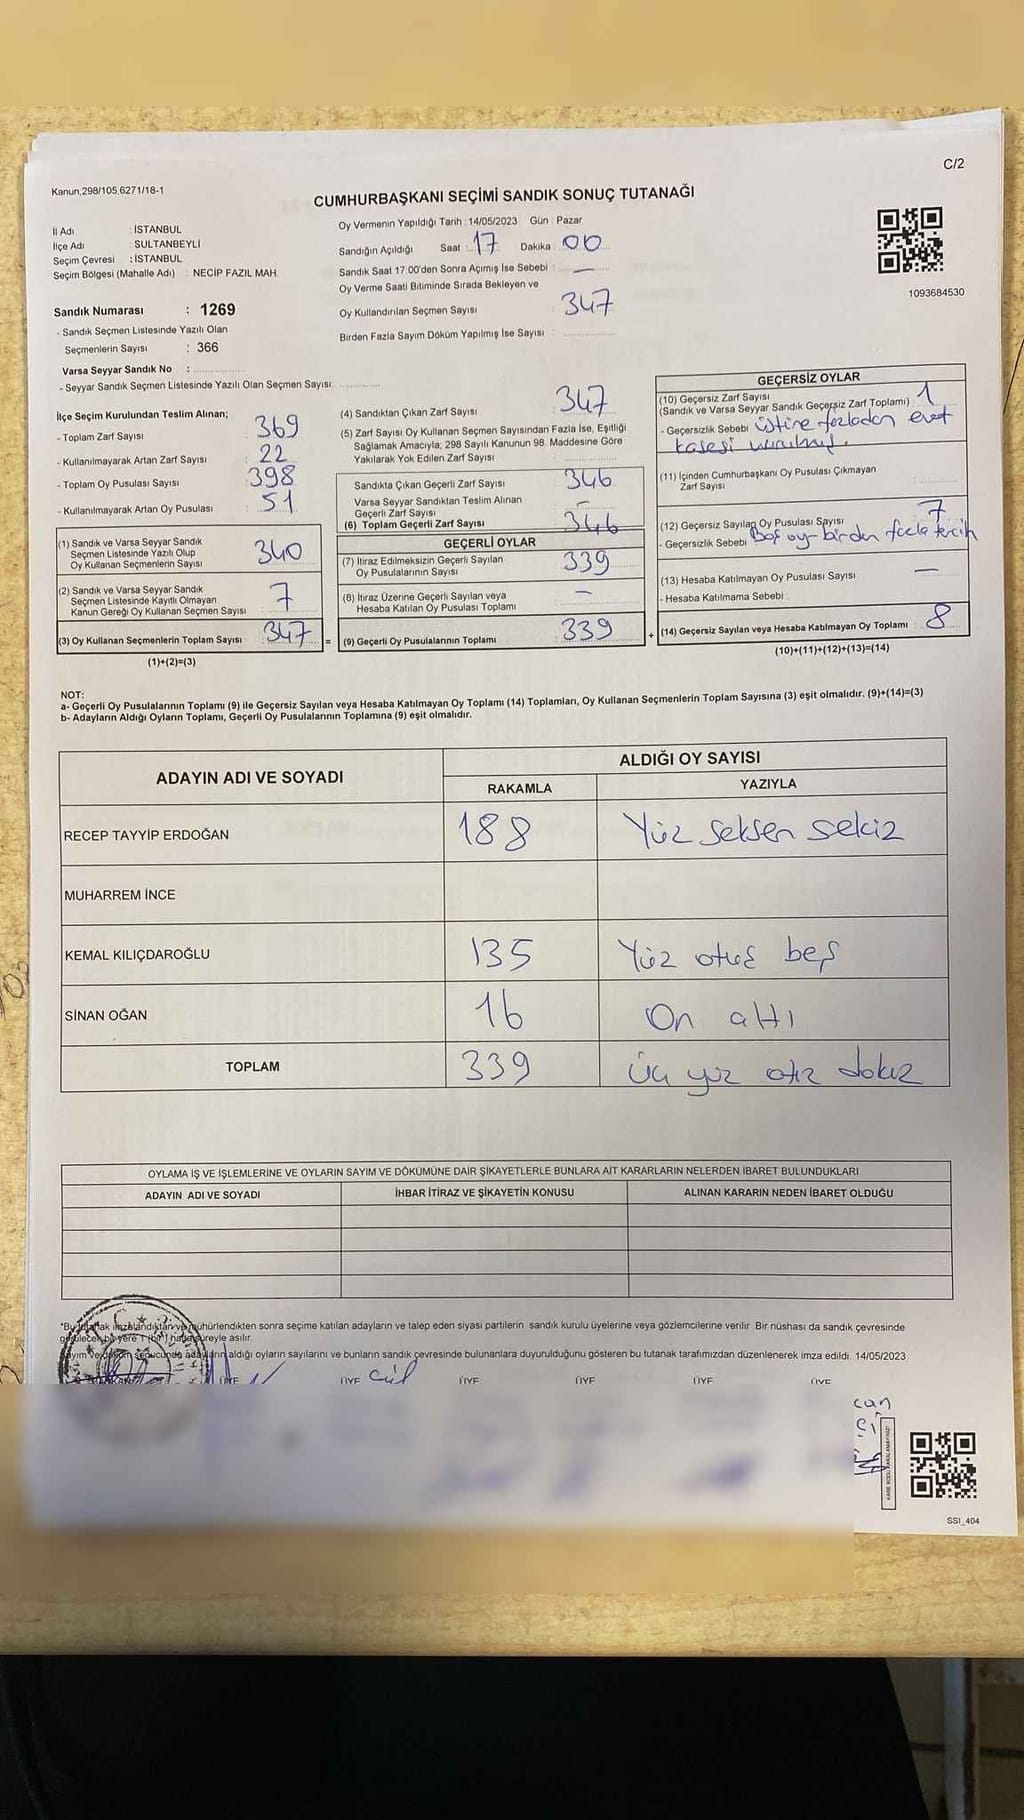 C/2
Kanun,298/105,6271/18-1
CUMHURBAŞKANI SEÇİMİ SANDIK SONUÇ TUTANAĞI
İl Adı : İSTANBUL
İlçe Adı : SULTANBEYLİ
Seçim Çevresi : İSTANBUL
Seçim Bölgesi (Mahalle Adı) : NECİP FAZIL MAH.
Sandık Numarası : 1269
- Sandık Seçmen Listesinde Yazılı Olan
Seçmenlerin Sayısı : 366
Varsa Seyyar Sandık No :
- Seyyar Sandık Seçmen Listesinde Yazılı Olan Seçmen Sayısı:
Oy Vermenin Yapıldığı Tarih : 14/05/2023 Gün : Pazar
Sandığın Açıldığı Saat : 17 Dakika : 00
Sandık Saat 17:00'den Sonra Açımış İse Sebebi : —
Oy Verme Saati Bitiminde Sırada Bekleyen ve
Oy Kullandırılan Seçmen Sayısı : 347
Birden Fazla Sayım Döküm Yapılmış İse Sayısı :
1093684530
İlçe Seçim Kurulundan Teslim Alınan;
- Toplam Zarf Sayısı : 369
- Kullanılmayarak Artan Zarf Sayısı : 22
- Toplam Oy Pusulası Sayısı : 398
- Kullanılmayarak Artan Oy Pusulası : 51
(1) Sandık ve Varsa Seyyar Sandık
Seçmen Listesinde Yazılı Olup
Oy Kullanan Seçmenlerin Sayısı : 340
(2) Sandık ve Varsa Seyyar Sandık
Seçmen Listesinde Kayıtlı Olmayan
Kanun Gereği Oy Kullanan Seçmen Sayısı : 7
(3) Oy Kullanan Seçmenlerin Toplam Sayısı : 347
(1)+(2)=(3)
(4) Sandıktan Çıkan Zarf Sayısı : 347
(5) Zarf Sayısı Oy Kullanan Seçmen Sayısından Fazla İse, Eşitliği
Sağlamak Amacıyla; 298 Sayılı Kanunun 98. Maddesine Göre
Yakılarak Yok Edilen Zarf Sayısı :
Sandıkta Çıkan Geçerli Zarf Sayısı : 346
Varsa Seyyar Sandıktan Teslim Alınan
Geçerli Zarf Sayısı : —
(6) Toplam Geçerli Zarf Sayısı : 346
GEÇERLİ OYLAR
(7) İtiraz Edilmeksizin Geçerli Sayılan
Oy Pusulalarının Sayısı : 339
(8) İtiraz Üzerine Geçerli Sayılan veya
Hesaba Katılan Oy Pusulası Toplamı : —
(9) Geçerli Oy Pusulalarının Toplamı : 339
=
+
GEÇERSİZ OYLAR
(10) Geçersiz Zarf Sayısı : 1
(Sandık ve Varsa Seyyar Sandık Geçersiz Zarf Toplamı)
- Geçersizlik Sebebi : üstüne fazladan evet
kasesi vurulmuş.
(11) İçinden Cumhurbaşkanı Oy Pusulası Çıkmayan
Zarf Sayısı
(12) Geçersiz Sayılan Oy Pusulası Sayısı : 7
- Geçersizlik Sebebi : Boş oy- birden fazla tercih
(13) Hesaba Katılmayan Oy Pusulası Sayısı : —
- Hesaba Katılmama Sebebi :
(14) Geçersiz Sayılan veya Hesaba Katılmayan Oy Toplamı : 8
(10)+(11)+(12)+(13)=(14)
NOT:
a- Geçerli Oy Pusulalarının Toplamı (9) ile Geçersiz Sayılan veya Hesaba Katılmayan Oy Toplamı (14) Toplamları, Oy Kullanan Seçmenlerin Toplam Sayısına (3) eşit olmalıdır. (9)+(14)=(3)
b- Adayların Aldığı Oyların Toplamı, Geçerli Oy Pusulalarının Toplamına (9) eşit olmalıdır.
ADAYIN ADI VE SOYADI
ALDIĞI OY SAYISI
RAKAMLA YAZIYLA
RECEP TAYYİP ERDOĞAN 188 Yüz seksen sekiz
MUHARREM İNCE
KEMAL KILIÇDAROĞLU 135 Yüz otuz beş
SİNAN OĞAN 16 On altı
TOPLAM 339 üç yüz otuz dokuz
OYLAMA İŞ VE İŞLEMLERİNE VE OYLARIN SAYIM VE DÖKÜMÜNE DAİR ŞİKAYETLERLE BUNLARA AİT KARARLARIN NELERDEN İBARET BULUNDUKLARI
ADAYIN ADI VE SOYADI İHBAR İTİRAZ VE ŞİKAYETİN KONUSU ALINAN KARARIN NEDEN İBARET OLDUĞU
imzalandıktan ve mühürlendikten sonra seçime katılan adayların ve talep eden siyasi partilerin sandık kurulu üyelerine veya gözlemcilerine verilir. Bir nüshası da sandık çevresinde
yere 1 (bir) hafta süreyle asılır.
aldığı oyların sayılarını ve bunların sandık çevresinde bulunanlara duyurulduğunu gösteren bu tutanak tarafımızdan düzenlenerek imza edildi. 14/05/2023
ÜYE ÜYE ÜYE ÜYE ÜYE ÜYE
can
SSI_404